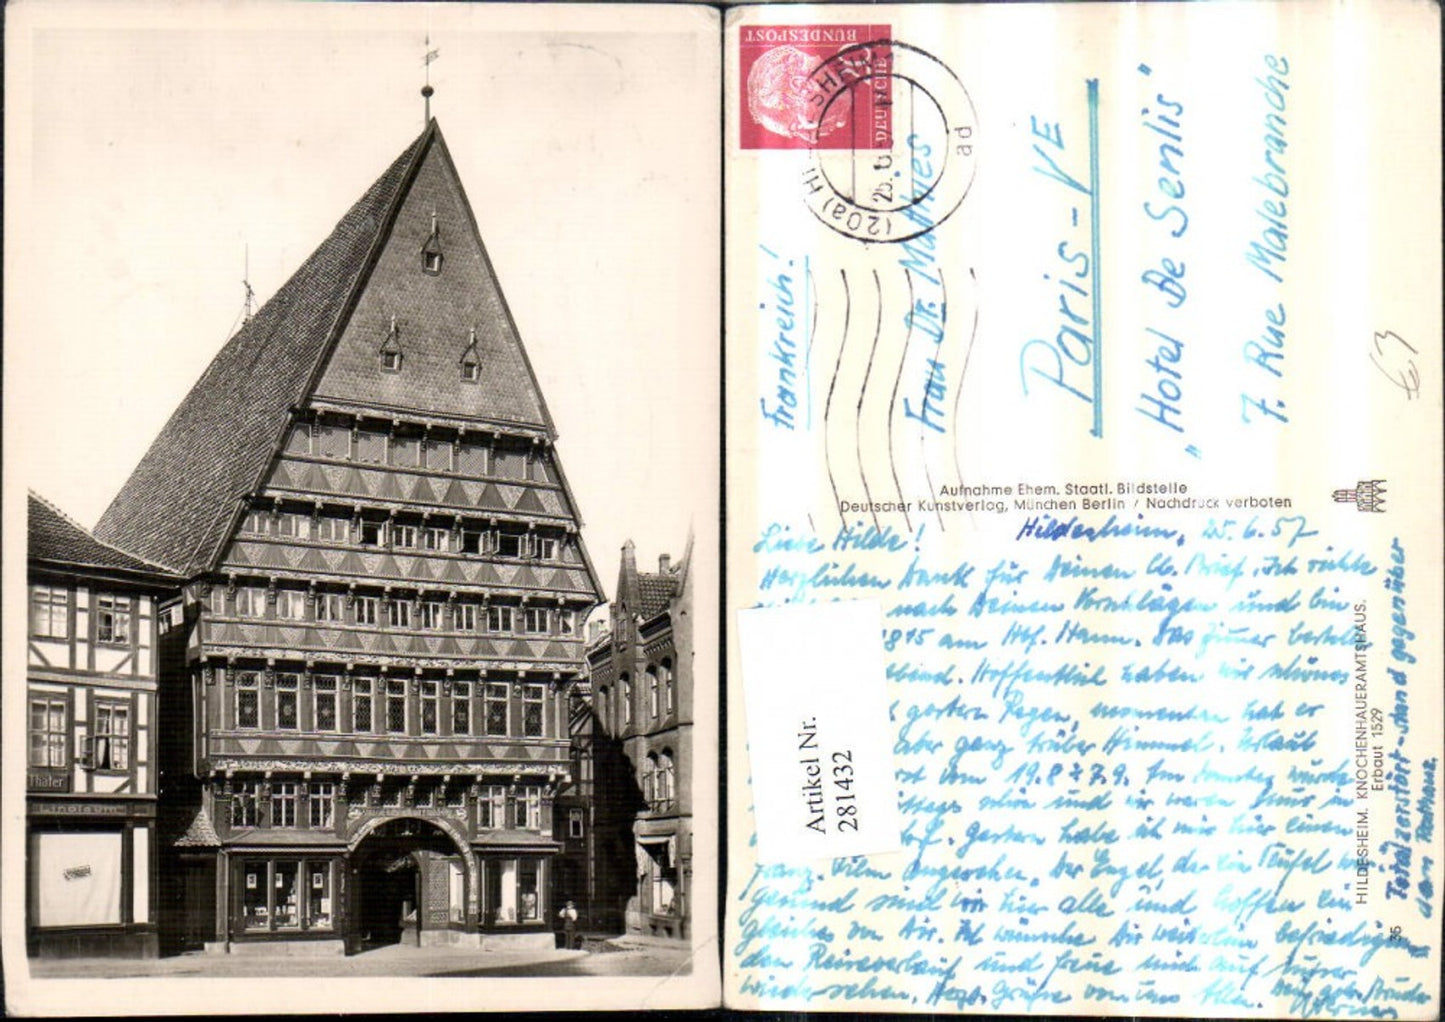 Thaler
Linoleum
BUNDESPOST
DEUTSCHE
(20a) HI
SHEIM 1
25.6.5
ad
Frankreich!
Frau Dr. Mathies
Paris-VE
"Hotel De Senlis"
7. Rue Malebranche
€3
Aufnahme Ehem. Staatl. Bildstelle
Deutscher Kunstverlag, München Berlin / Nachdruck verboten
Hildesheim, 25.6.57
Liebe Hilde!
Herzlichen Dank für Deinen lb. Brief. Ich richte
nach Deinen Vorschlägen und bin
1815 am Hbf. Hann. Das Zimmer bestell
ebend. Hoffentlich haben wir schönes
gestern Regen, momentan hat er
aber ganz trüber Himmel. Urlaub
erst vom 19.8 7.9. Am Samstag wurde
schon und wir waren kurz in
Gestern habe ich mir hier einen
franz. Film angesehen. Der Engel, der ein Teufel war
Gesund sind wir hier alle und hoffen ein
gleiches von Dir. Ich wünsche Dir weiterhin befriedigen
den Reiseverlauf und freue mich auf unser
wiedersehen. Herzl. Grüße von uns Allen.
HILDESHEIM. KNOCHENHAUERAMTSHAUS.
Erbaut 1529
35
Total zerstört - stand gegenüber
dem Rathaus.
Artikel Nr.
281432